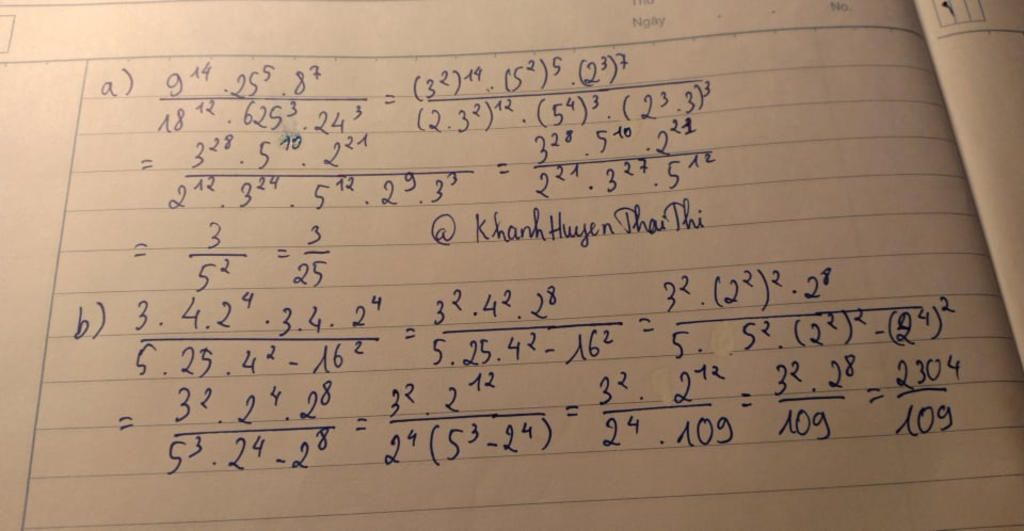 Thứ
Ngày
No.
a) \frac{9^{14} . 25^5 . 8^7}{18^{12} . 625^3 . 24^3} = \frac{(3^2)^{14} . (5^2)^5 . (2^3)^7}{(2.3^2)^{12} . (5^4)^3 . (2^3.3)^3}
= \frac{3^{28} . 5^{10} . 2^{21}}{2^{12} . 3^{24} . 5^{12} . 2^9 . 3^3} = \frac{3^{28} . 5^{10} . 2^{21}}{2^{21} . 3^{27} . 5^{12}}
= \frac{3}{5^2} = \frac{3}{25} @ KhanhHuyenThaiThi
b) \frac{3 . 4 . 2^4 . 3.4 . 2^4}{5 . 25 . 4^2 - 16^2} = \frac{3^2 . 4^2 . 2^8}{5 . 25 . 4^2 - 16^2} = \frac{3^2 . (2^2)^2 . 2^8}{5 . 5^2 . (2^2)^2 - (2^4)^2}
= \frac{3^2 . 2^4 . 2^8}{5^3 . 2^4 - 2^8} = \frac{3^2 . 2^{12}}{2^4 (5^3 - 2^4)} = \frac{3^2 . 2^{12}}{2^4 . 109} = \frac{3^2 . 2^8}{109} = \frac{2304}{109}